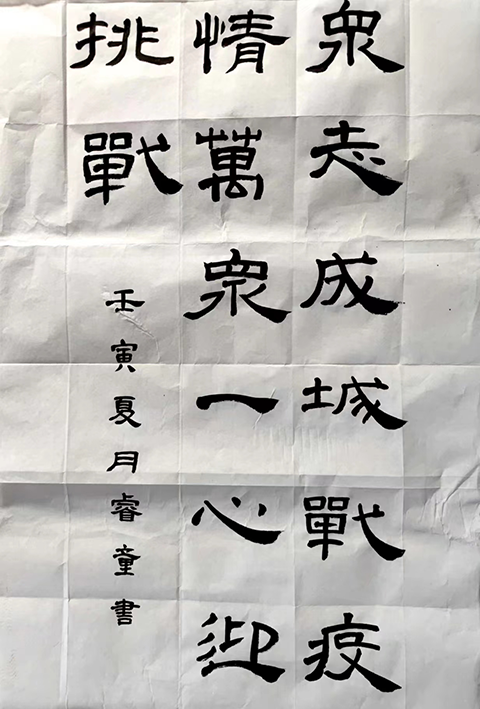 眾志成城戰疫
情萬眾一心迎
挑戰
壬寅夏月睿童書